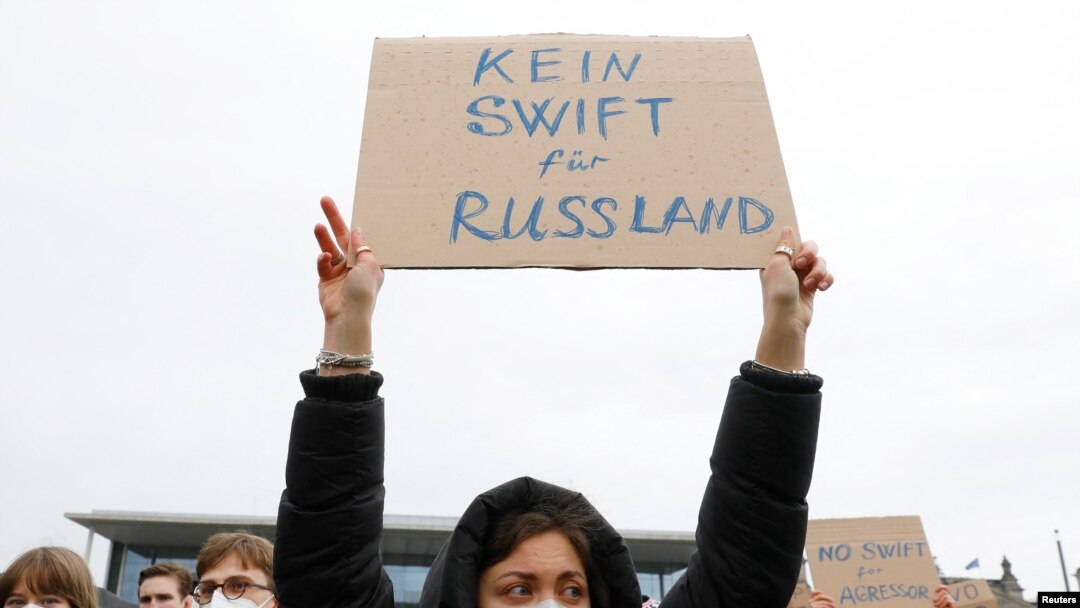 KEIN
SWIFT
für
RUSSLAND
NO SWIFT
for
AGRESSOR
NO
Reuters